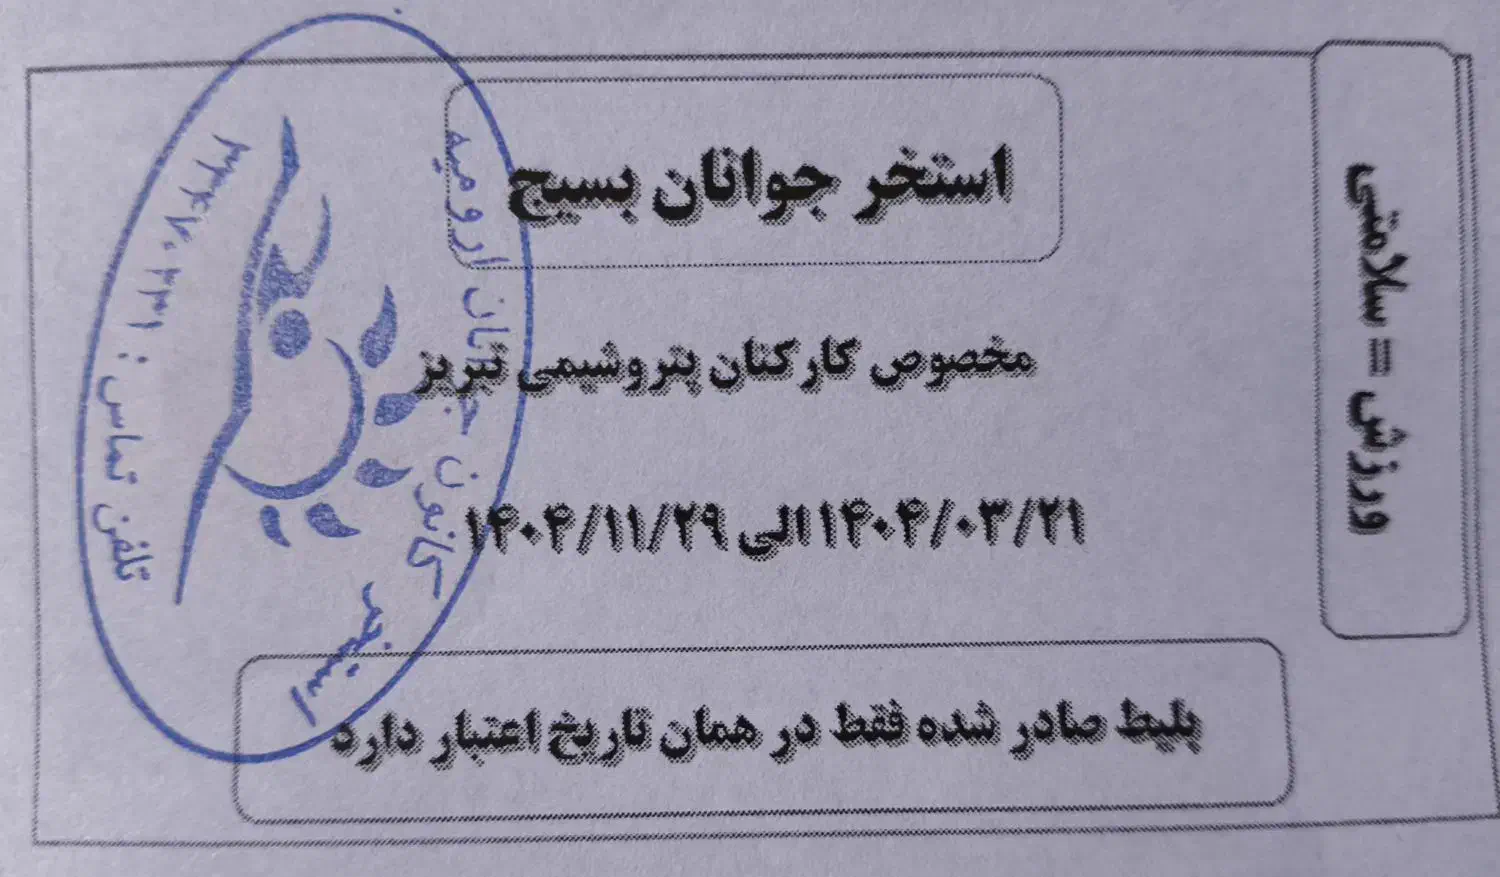 استخر جوانان بسیج
مخصوص کارکنان پتروشیمی تبریز
۱۴۰۴/۰۳/۲۱ الی ۱۴۰۴/۱۱/۲۹
بلیط صادر شده فقط در همان تاریخ اعتبار دارد
ورزش = سلامتی
استخر
کانون جوانان ارومیه
تلفن تماس :